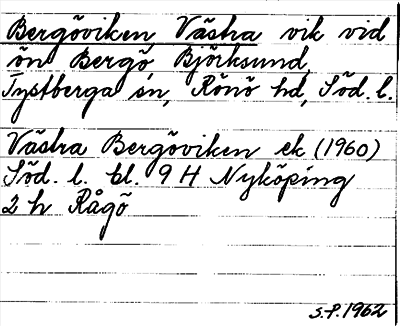 Bergöviken, Västra vik vid
ön Bergö, Björksund,
Tystberga sn, Rönö hd, Söd. l.
Västra Bergöviken ek (1960)
Söd. l. bl. 9 H Nyköping
2 h Rågö
S.P. 1962